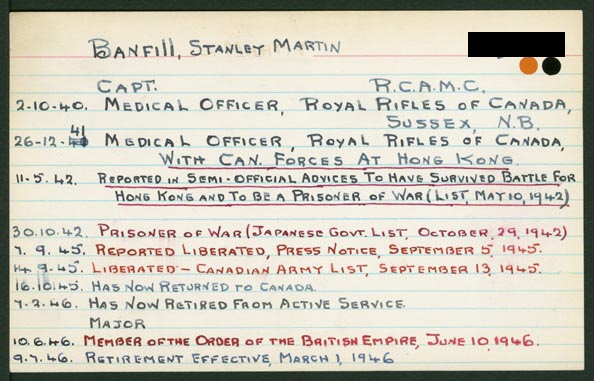 BANFILL, STANLEY MARTIN
CAPT. R.C.A.M.C.
2-10-40. MEDICAL OFFICER, ROYAL RIFLES OF CANADA,
SUSSEX, N.B.
41
26-12-40 MEDICAL OFFICER, ROYAL RIFLES OF CANADA,
WITH CAN. FORCES AT HONG KONG.
11.5.42. REPORTED IN SEMI-OFFICIAL ADVICES TO HAVE SURVIVED BATTLE FOR
HONG KONG AND TO BE A PRISONER OF WAR (LIST, MAY 10, 1942)
30.10.42. PRISONER OF WAR (JAPANESE GOVT. LIST, OCTOBER, 29, 1942)
7.9.45. REPORTED LIBERATED, PRESS NOTICE, SEPTEMBER 5, 1945.
14.9.45. LIBERATED - CANADIAN ARMY LIST, SEPTEMBER 13, 1945.
16.10.45. HAS NOW RETURNED TO CANADA.
7.2.46. HAS NOW RETIRED FROM ACTIVE SERVICE.
MAJOR
10.6.46. MEMBER OF THE ORDER OF THE BRITISH EMPIRE, JUNE 10, 1946.
9.7.46. RETIREMENT EFFECTIVE, MARCH 1, 1946